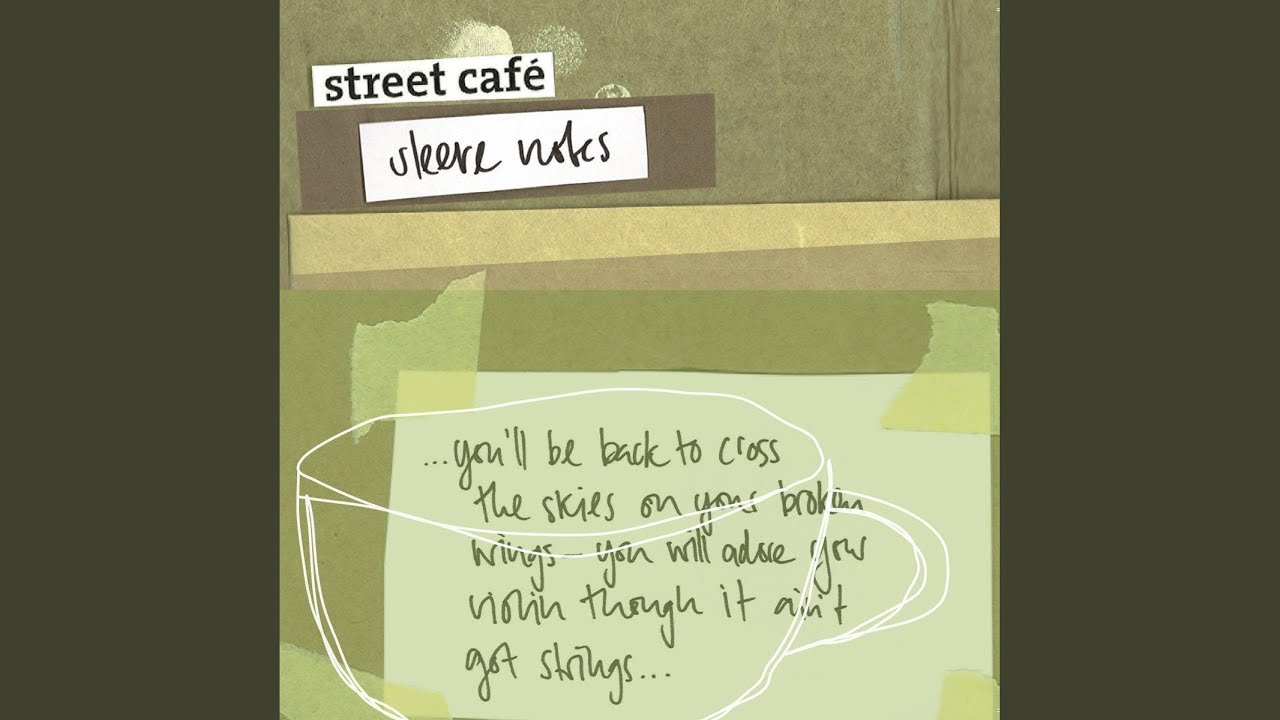 street café
sleeve notes
...you'll be back to cross
the skies on your broken
wings - you will adore your
violin though it ain't
got strings...